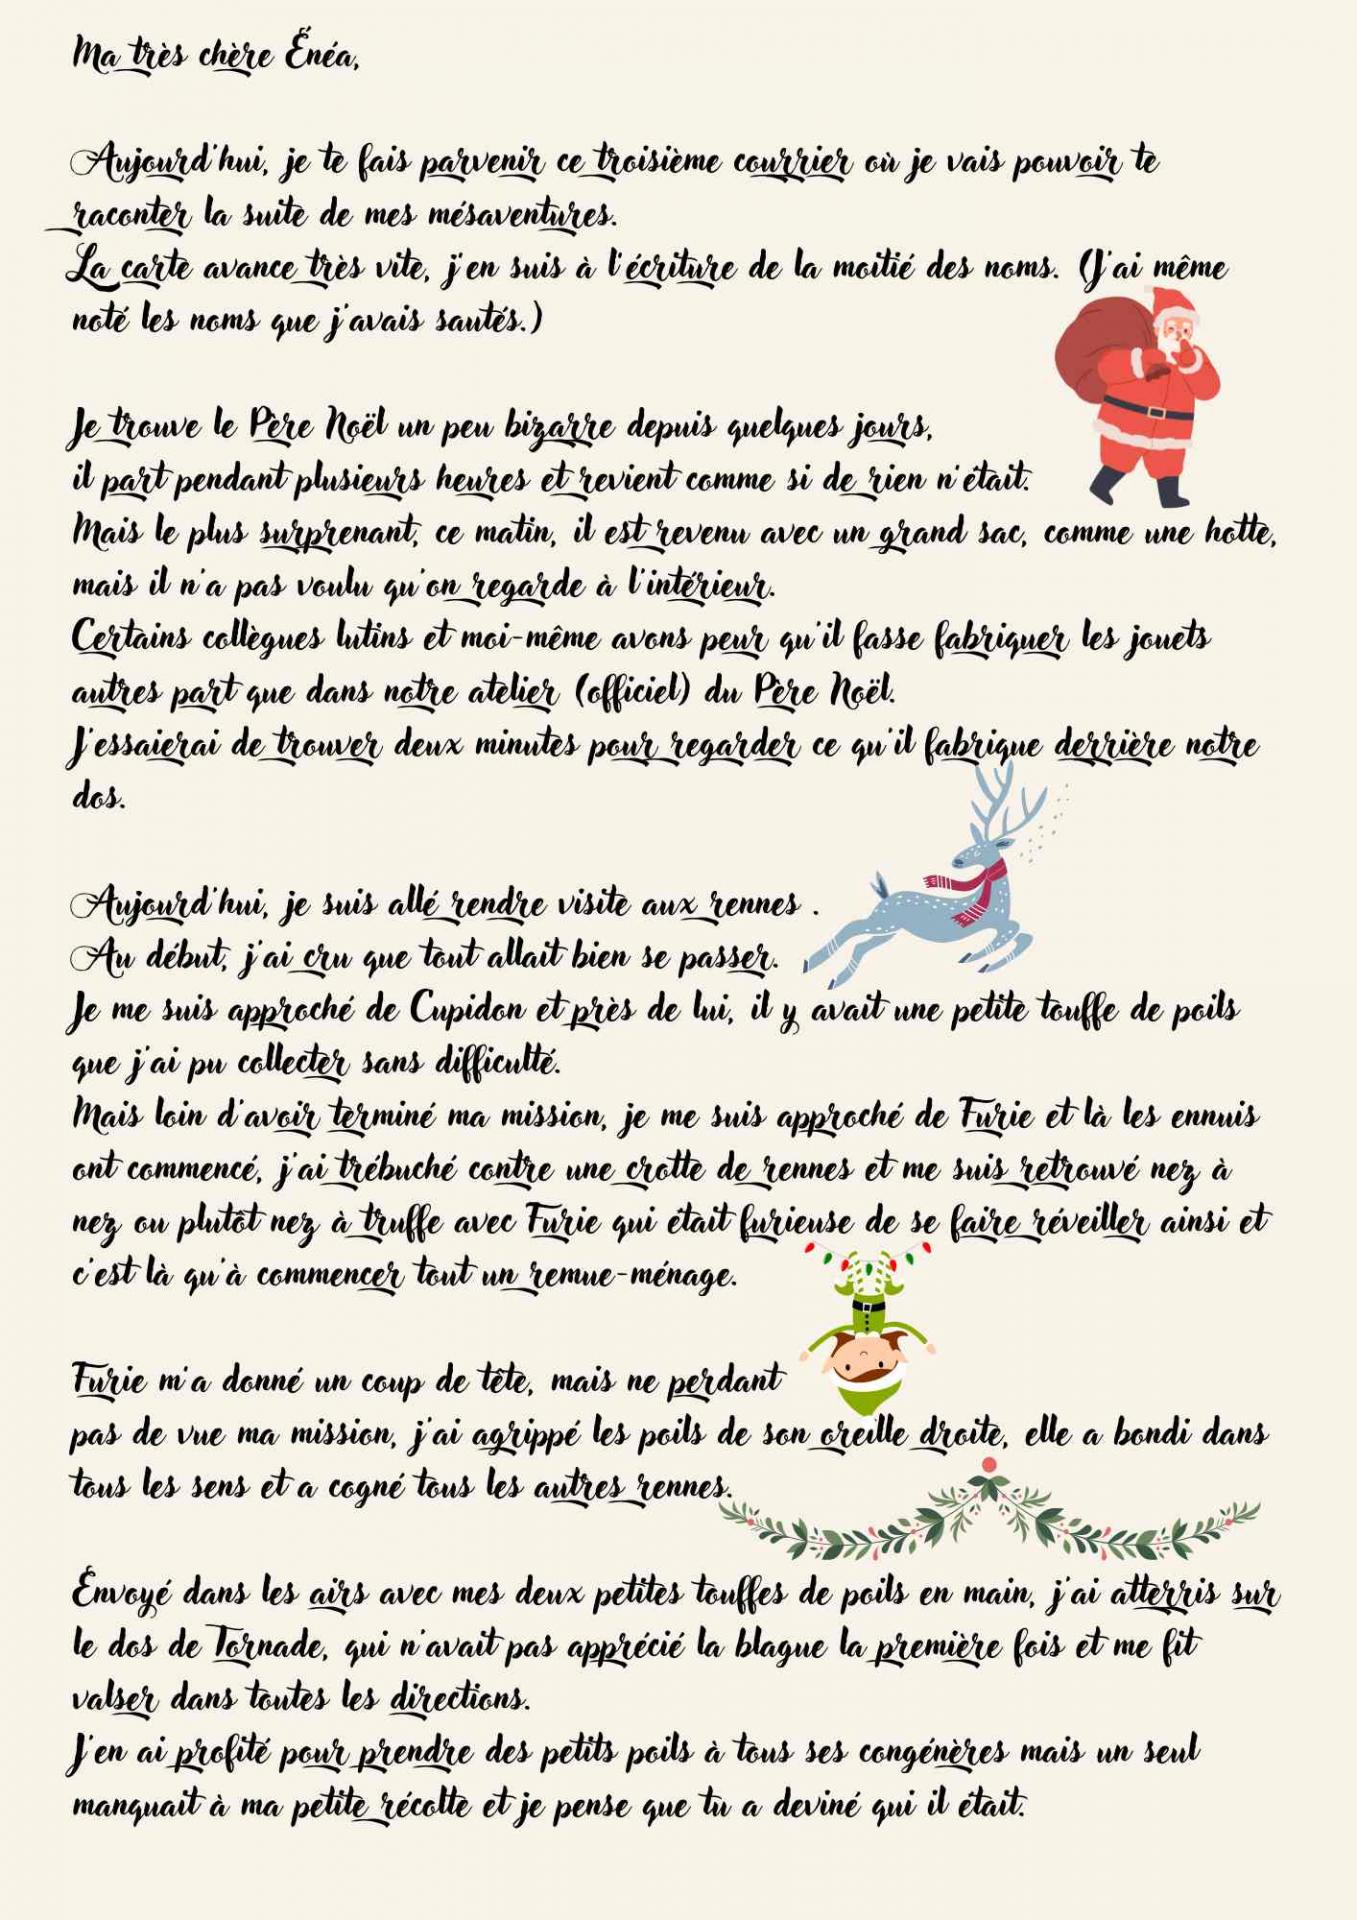 Ma très chère Énéa,
Aujourd'hui, je te fais parvenir ce troisième courrier où je vais pouvoir te
raconter la suite de mes mésaventures.
La carte avance très vite, j'en suis à l'écriture de la moitié des noms. (J'ai même
noté les noms que j'avais sautés.)
Je trouve le Père Noël un peu bizarre depuis quelques jours,
il part pendant plusieurs heures et revient comme si de rien n'était.
Mais le plus surprenant, ce matin, il est revenu avec un grand sac, comme une hotte,
mais il n'a pas voulu qu'on regarde à l'intérieur.
Certains collègues lutins et moi-même avons peur qu'il fasse fabriquer les jouets
autres part que dans notre atelier (officiel) du Père Noël.
J'essaierai de trouver deux minutes pour regarder ce qu'il fabrique derrière notre
dos.
Aujourd'hui, je suis allé rendre visite aux rennes .
Au début, j'ai cru que tout allait bien se passer.
Je me suis approché de Cupidon et près de lui, il y avait une petite touffe de poils
que j'ai pu collecter sans difficulté.
Mais loin d'avoir terminé ma mission, je me suis approché de Furie et là les ennuis
ont commencé, j'ai trébuché contre une crotte de rennes et me suis retrouvé nez à
nez ou plutôt nez à truffe avec Furie qui était furieuse de se faire réveiller ainsi et
c'est là qu'à commencer tout un remue-ménage.
Furie m'a donné un coup de tête, mais ne perdant
pas de vue ma mission, j'ai agrippé les poils de son oreille droite, elle a bondi dans
tous les sens et a cogné tous les autres rennes.
Envoyé dans les airs avec mes deux petites touffes de poils en main, j'ai atterris sur
le dos de Tornade, qui n'avait pas apprécié la blague la première fois et me fit
valser dans toutes les directions.
J'en ai profité pour prendre des petits poils à tous ses congénères mais un seul
manquait à ma petite récolte et je pense que tu a deviné qui il était.